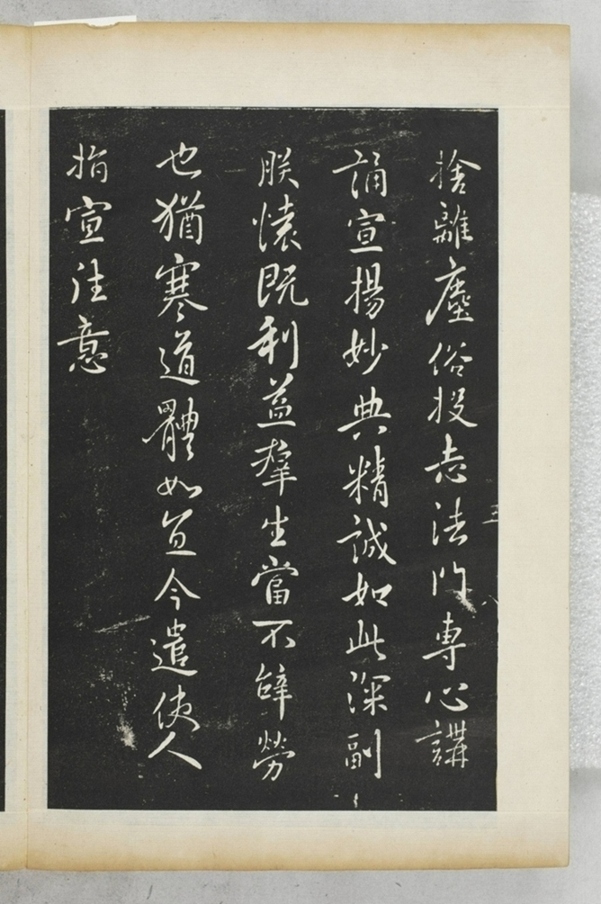 捨離塵俗投志法門專心講
誦宣揚妙典精誠如此深副
朕懷既利益群生當不辭勞
也猶寒道體如宜今遣使人
指宣往意